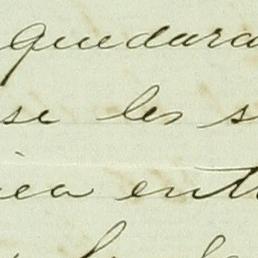 quedara
se les s
ica entr